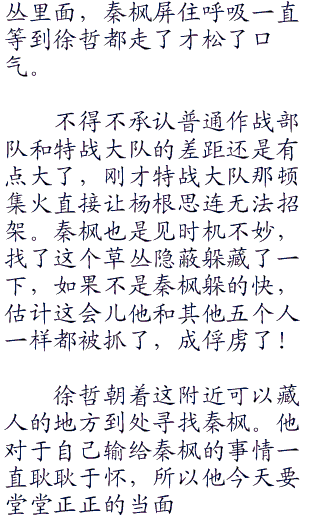 丛里面，秦枫屏住呼吸一直
等到徐哲都走了才松了口
气。
不得不承认普通作战部
队和特战大队的差距还是有
点大了，刚才特战大队那顿
集火直接让杨根思连无法招
架。秦枫也是见时机不妙，
找了这个草丛隐蔽躲藏了一
下，如果不是秦枫躲的快，
估计这会儿他和其他五个人
一样都被抓了，成俘虏了！
徐哲朝着这附近可以藏
人的地方到处寻找秦枫。他
对于自己输给秦枫的事情一
直耿耿于怀，所以他今天要
堂堂正正的当面